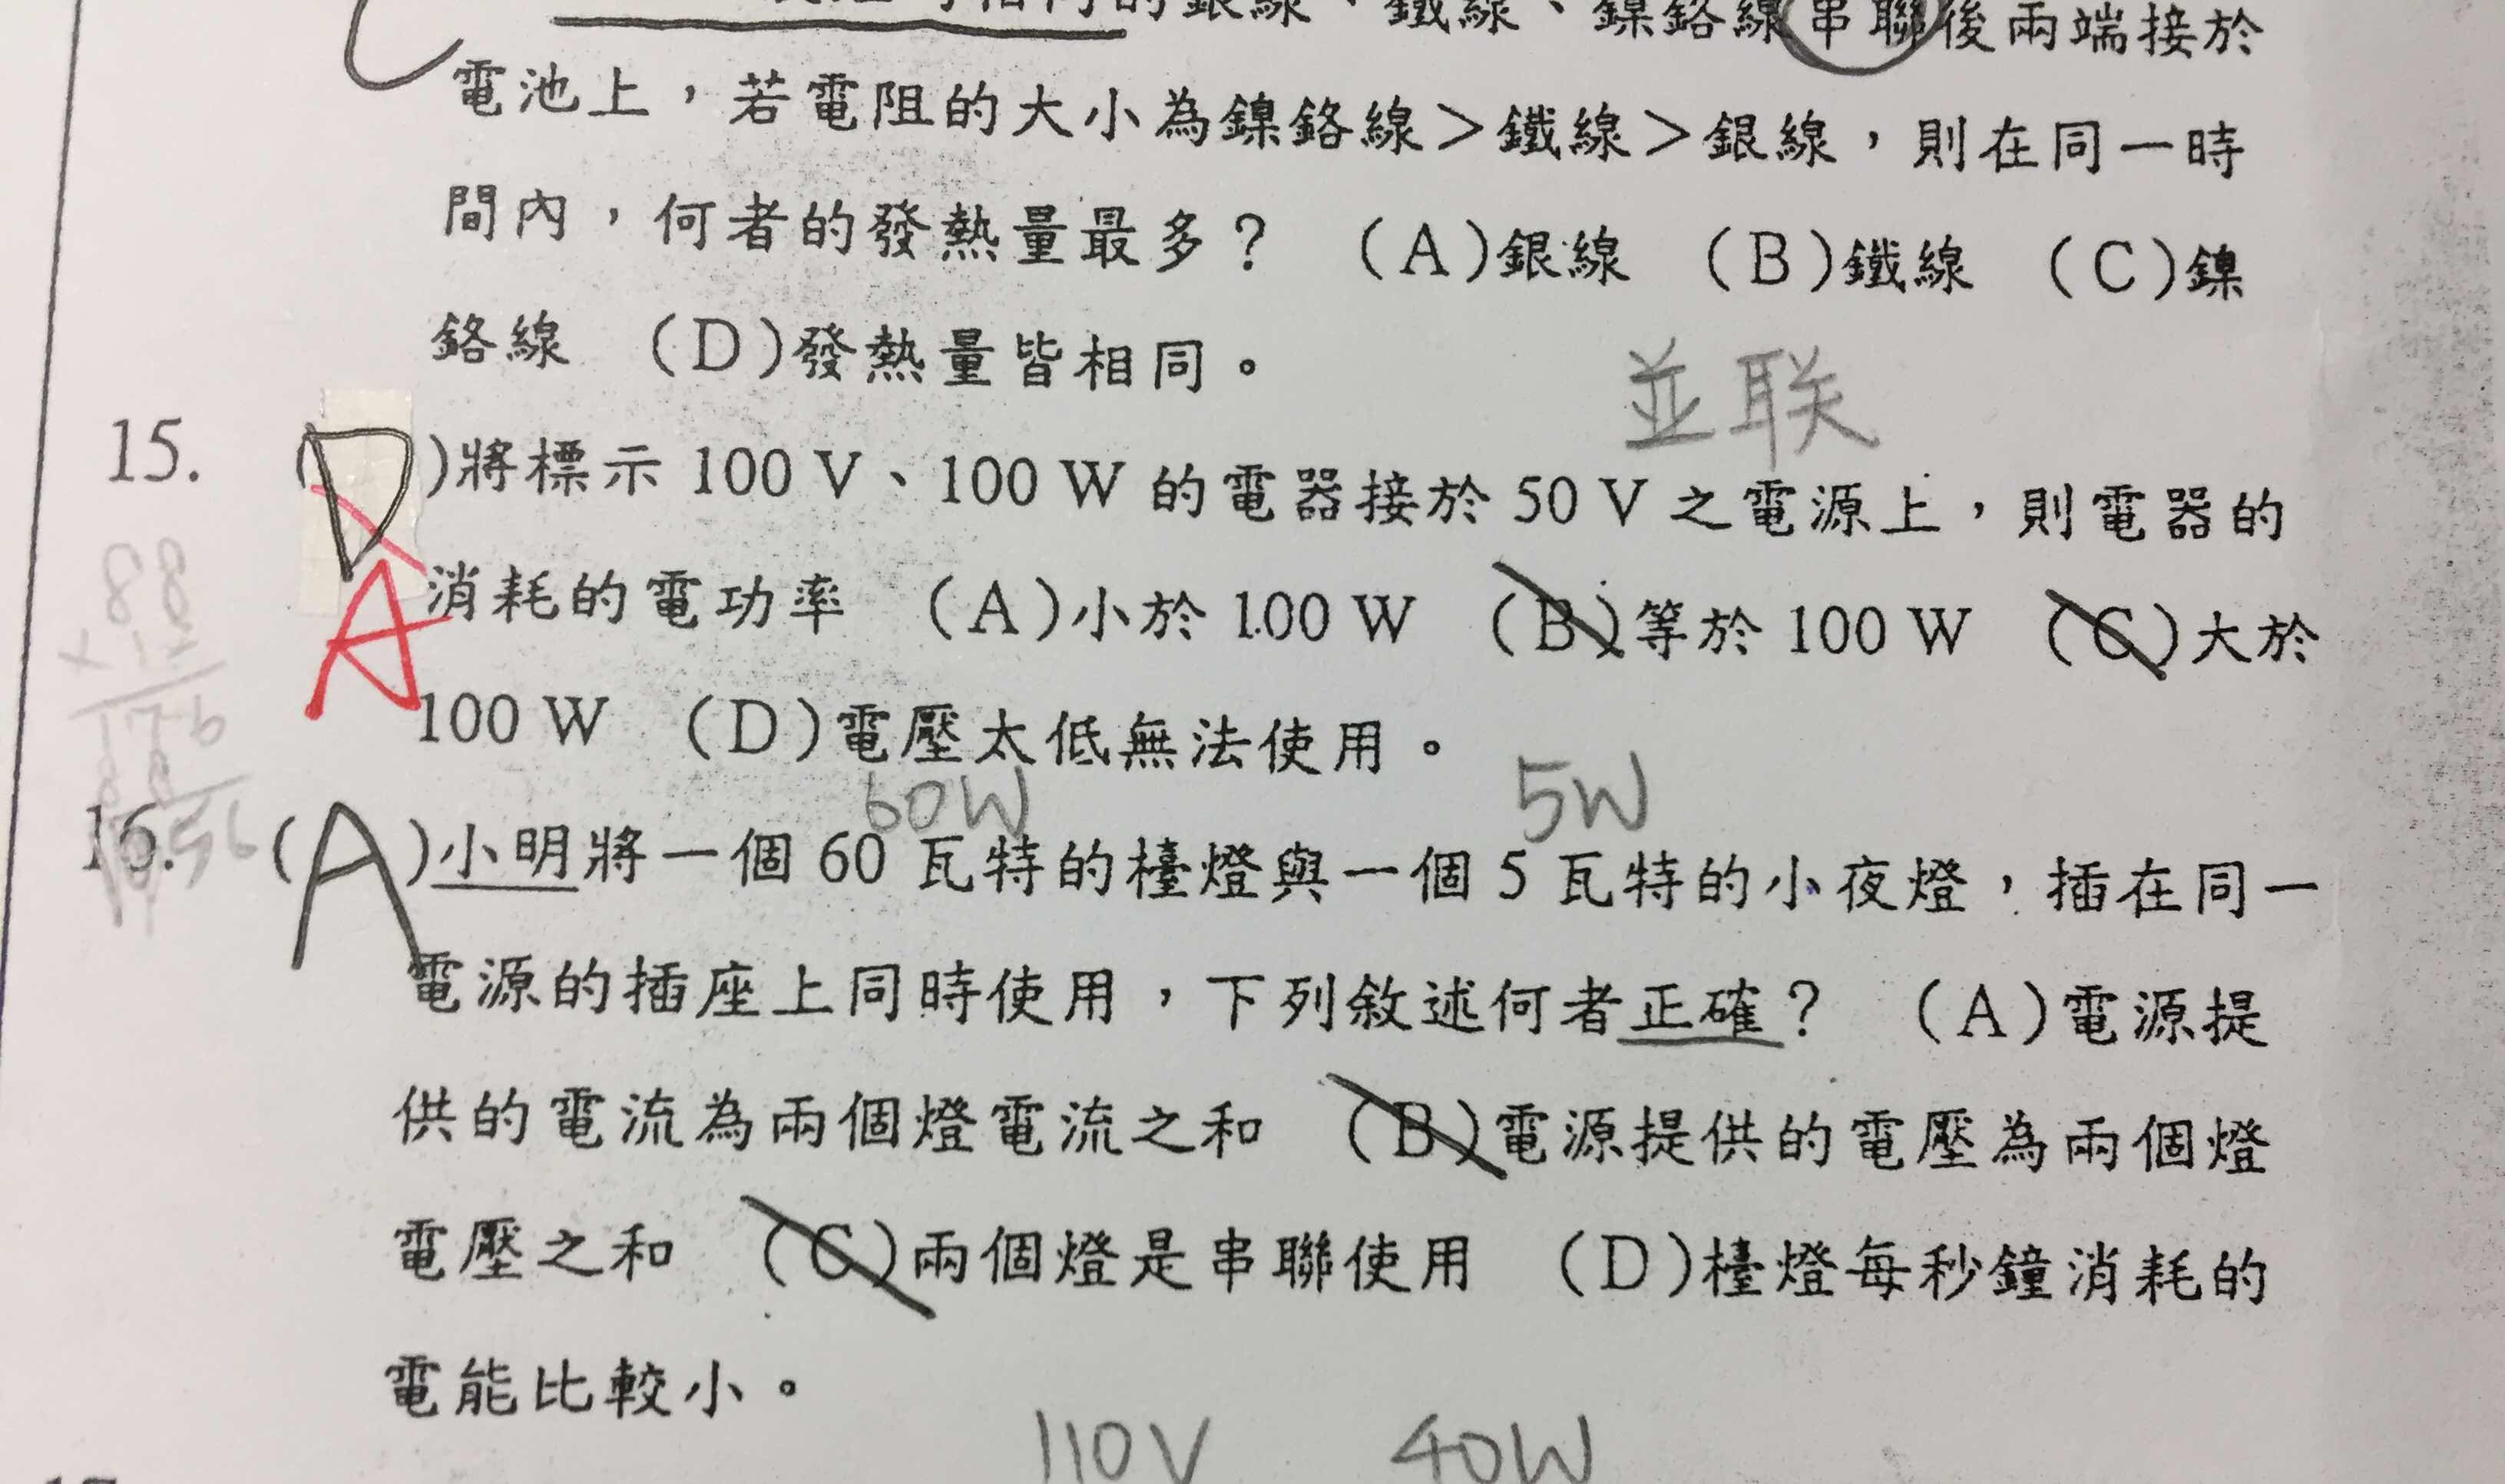 的銀線、鐵線、鎳鉻線串聯後兩端接於
C
電池上，若電阻的大小為鎳鉻線＞鐵線＞銀線，則在同一時
間內，何者的發熱量最多？ (A)銀線 (B)鐵線 (C)鎳
鉻線 (D)發熱量皆相同。
並联
15. (D)將標示 100 V、100 W 的電器接於 50 V 之電源上，則電器的
A
消耗的電功率 (A)小於 100 W (B)等於 100 W (C)大於
100 W (D)電壓太低無法使用。
88
×12
176
88
1056
60W 5W
16. (A)小明將一個 60 瓦特的檯燈與一個 5 瓦特的小夜燈，插在同一
電源的插座上同時使用，下列敘述何者正確？ (A)電源提
供的電流為兩個燈電流之和 (B)電源提供的電壓為兩個燈
電壓之和 (C)兩個燈是串聯使用 (D)檯燈每秒鐘消耗的
電能比較小。
110V 40W